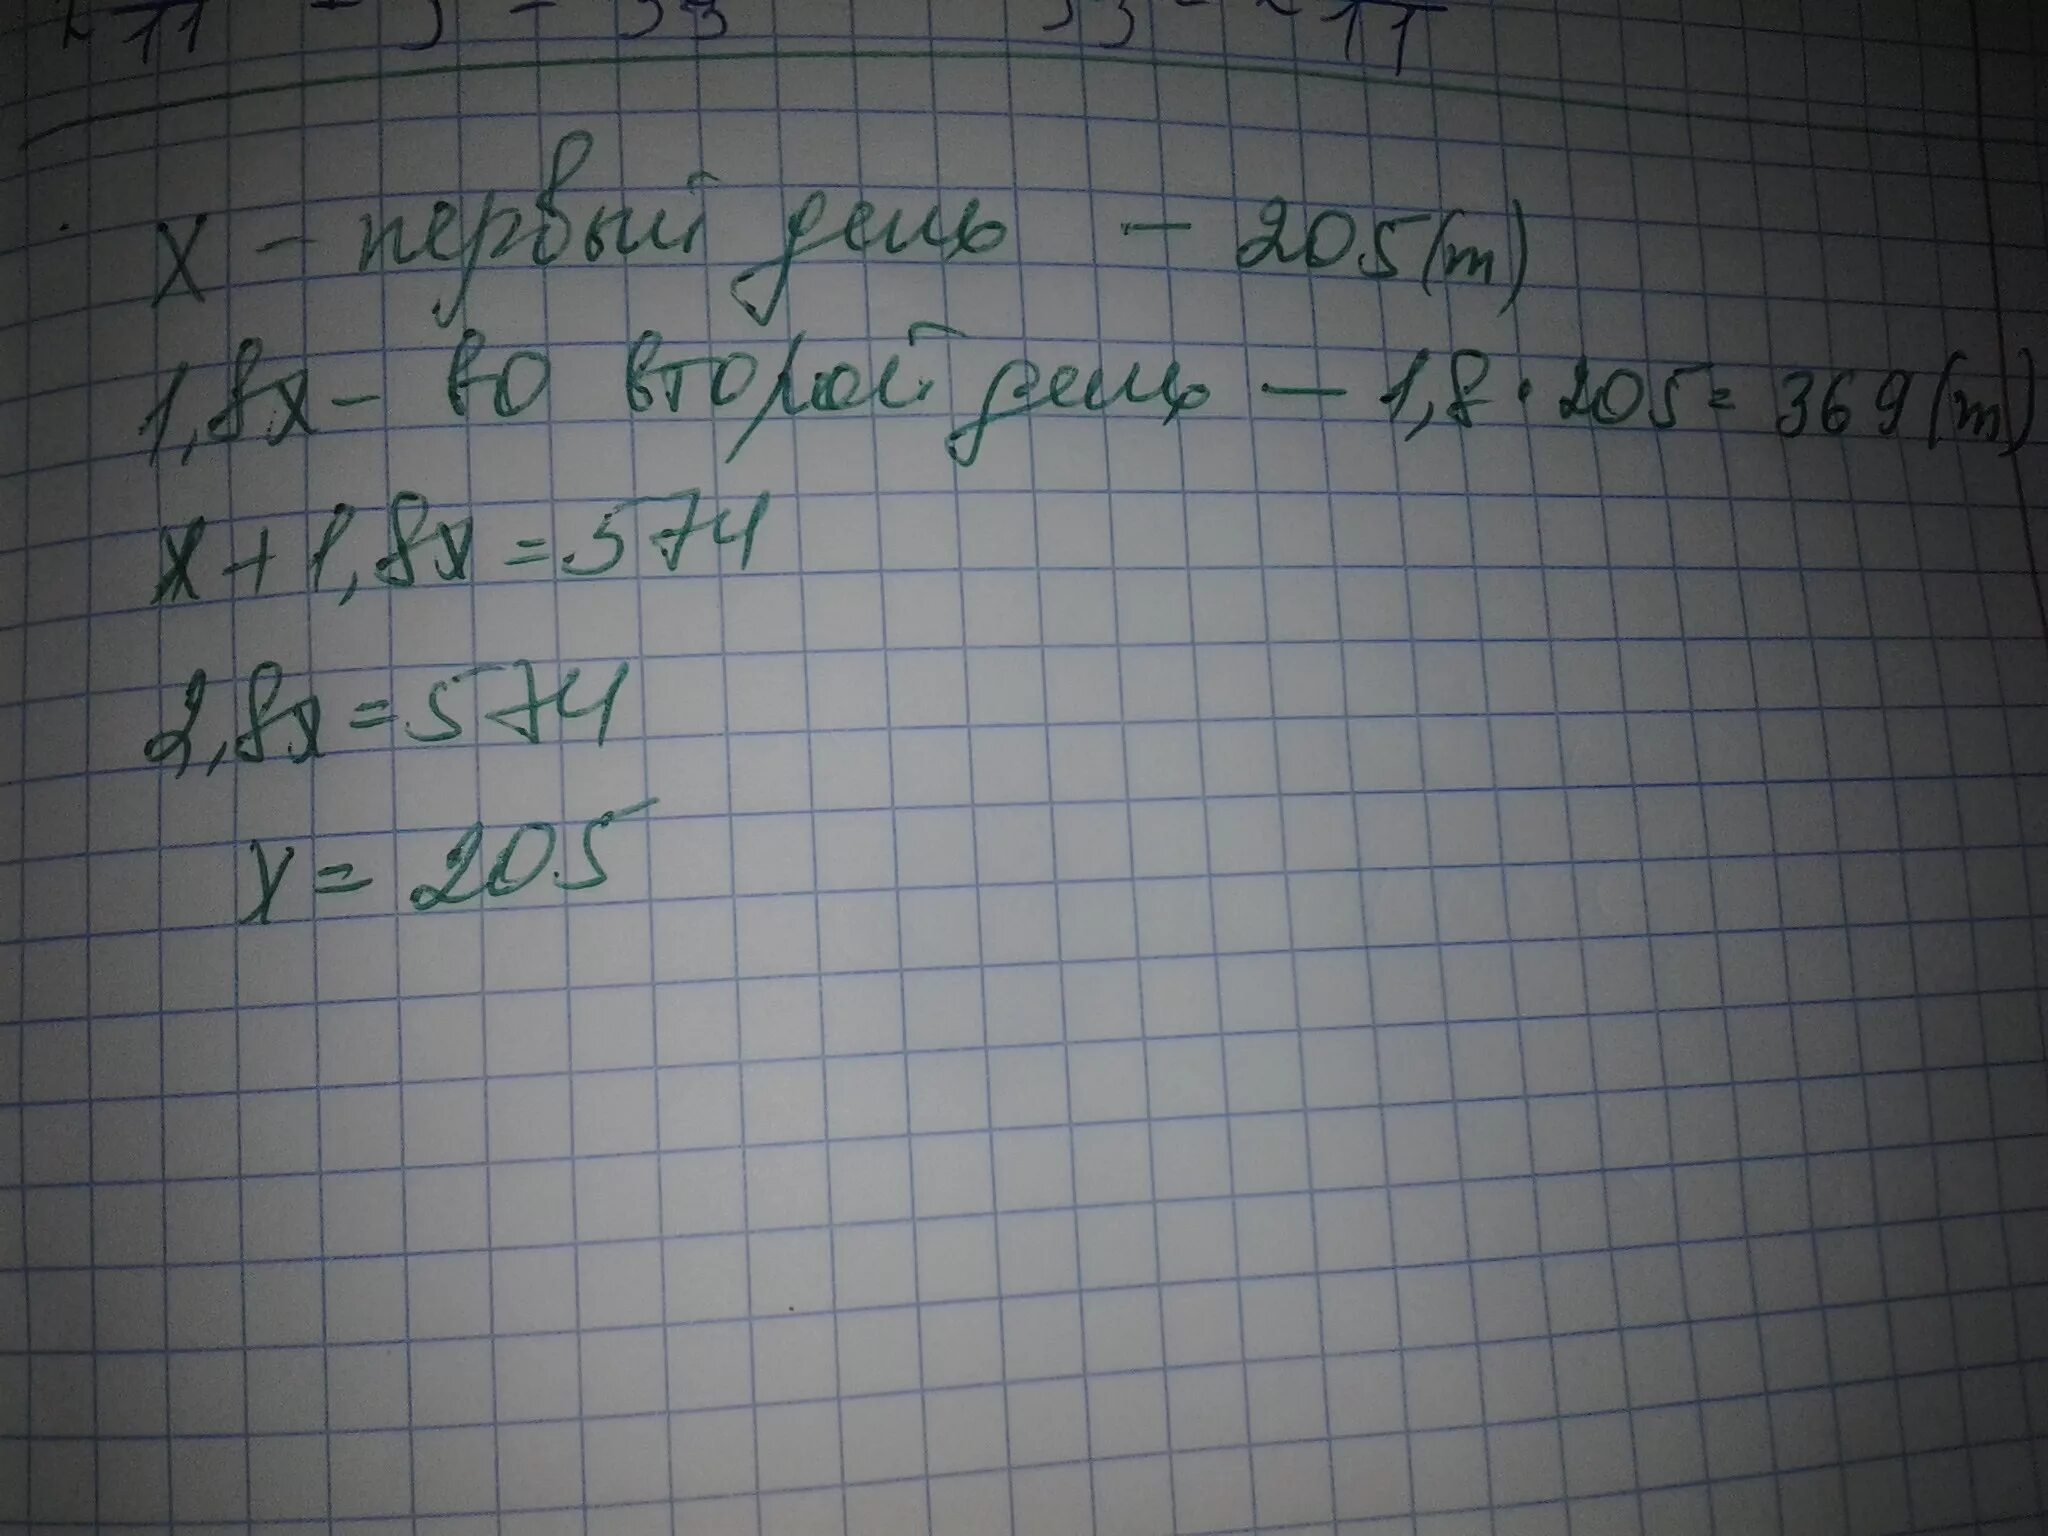 х – первый день – 205 (т)
1,8х – во второй день – 1,8 · 205 = 369 (т)
х + 1,8х = 574
2,8х = 574
х = 205